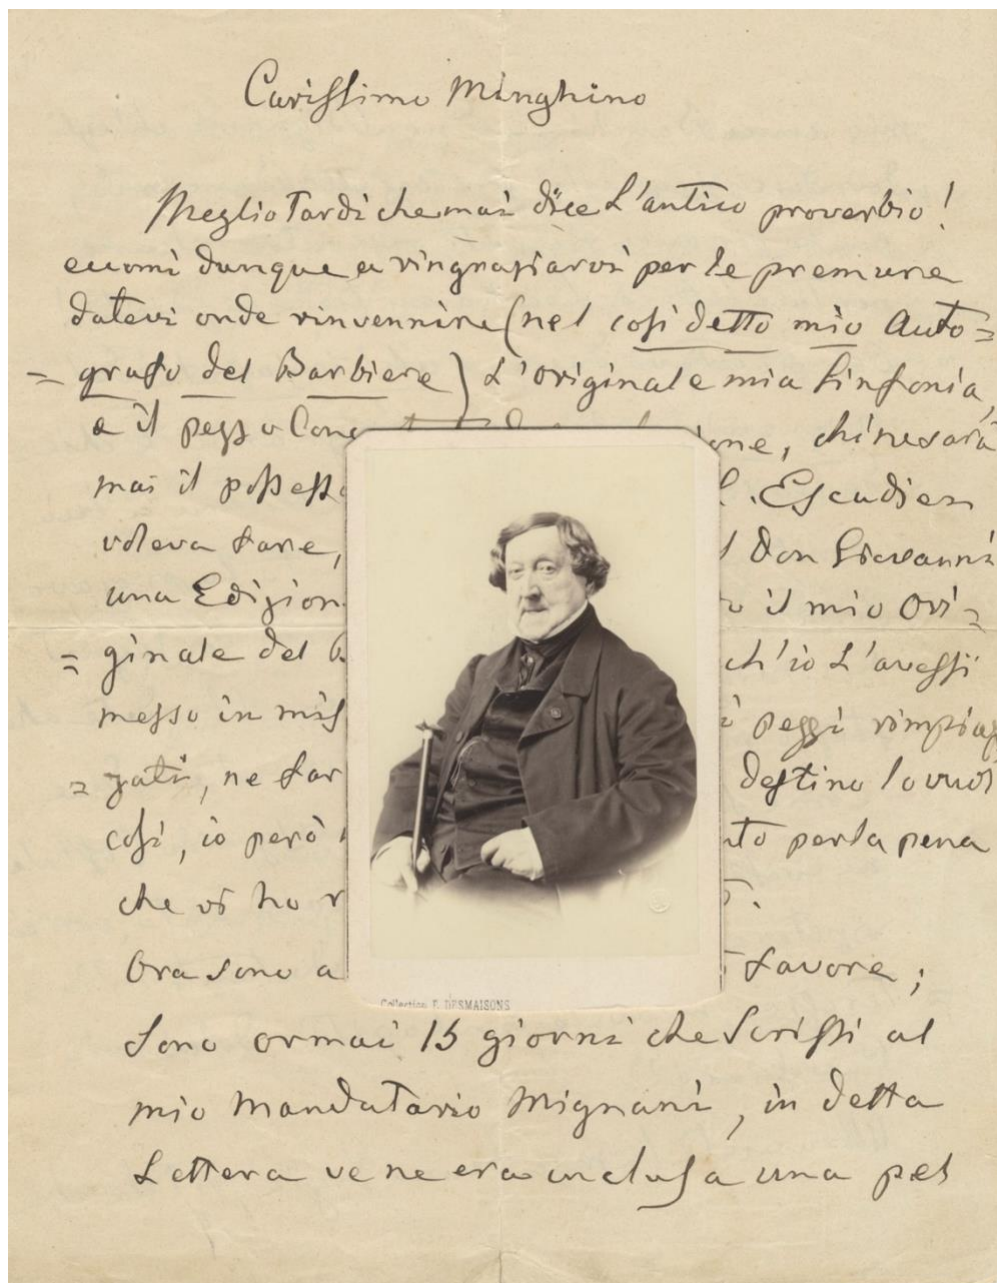 Carissimo Minghino
Meglio Tardi che mai dice L'antico proverbio!
eccomi dunque a ringraziarvi per le premure
datevi onde rinvennire (nel così detto mio Auto=
=grafo del Barbiere) L'originale mia Sinfonia,
e il pezzo Conc one, chi ne sarà
mai il possesso . Escudier
voleva fare, Don Giovanni
una Edizion il mio Ori=
=ginale del B ch'io L'avessi
messo in mis pezzi rimpiaz
=zati, ne far destino lo vuol
così, io però nto per la pena
che vi ho r
Ora sono a favore;
Collection E. DESMAISONS
Sono ormai 15 giorni che Scrissi al
mio Mandatario Mignani, in detta
Lettera ve ne era inclusa una pel